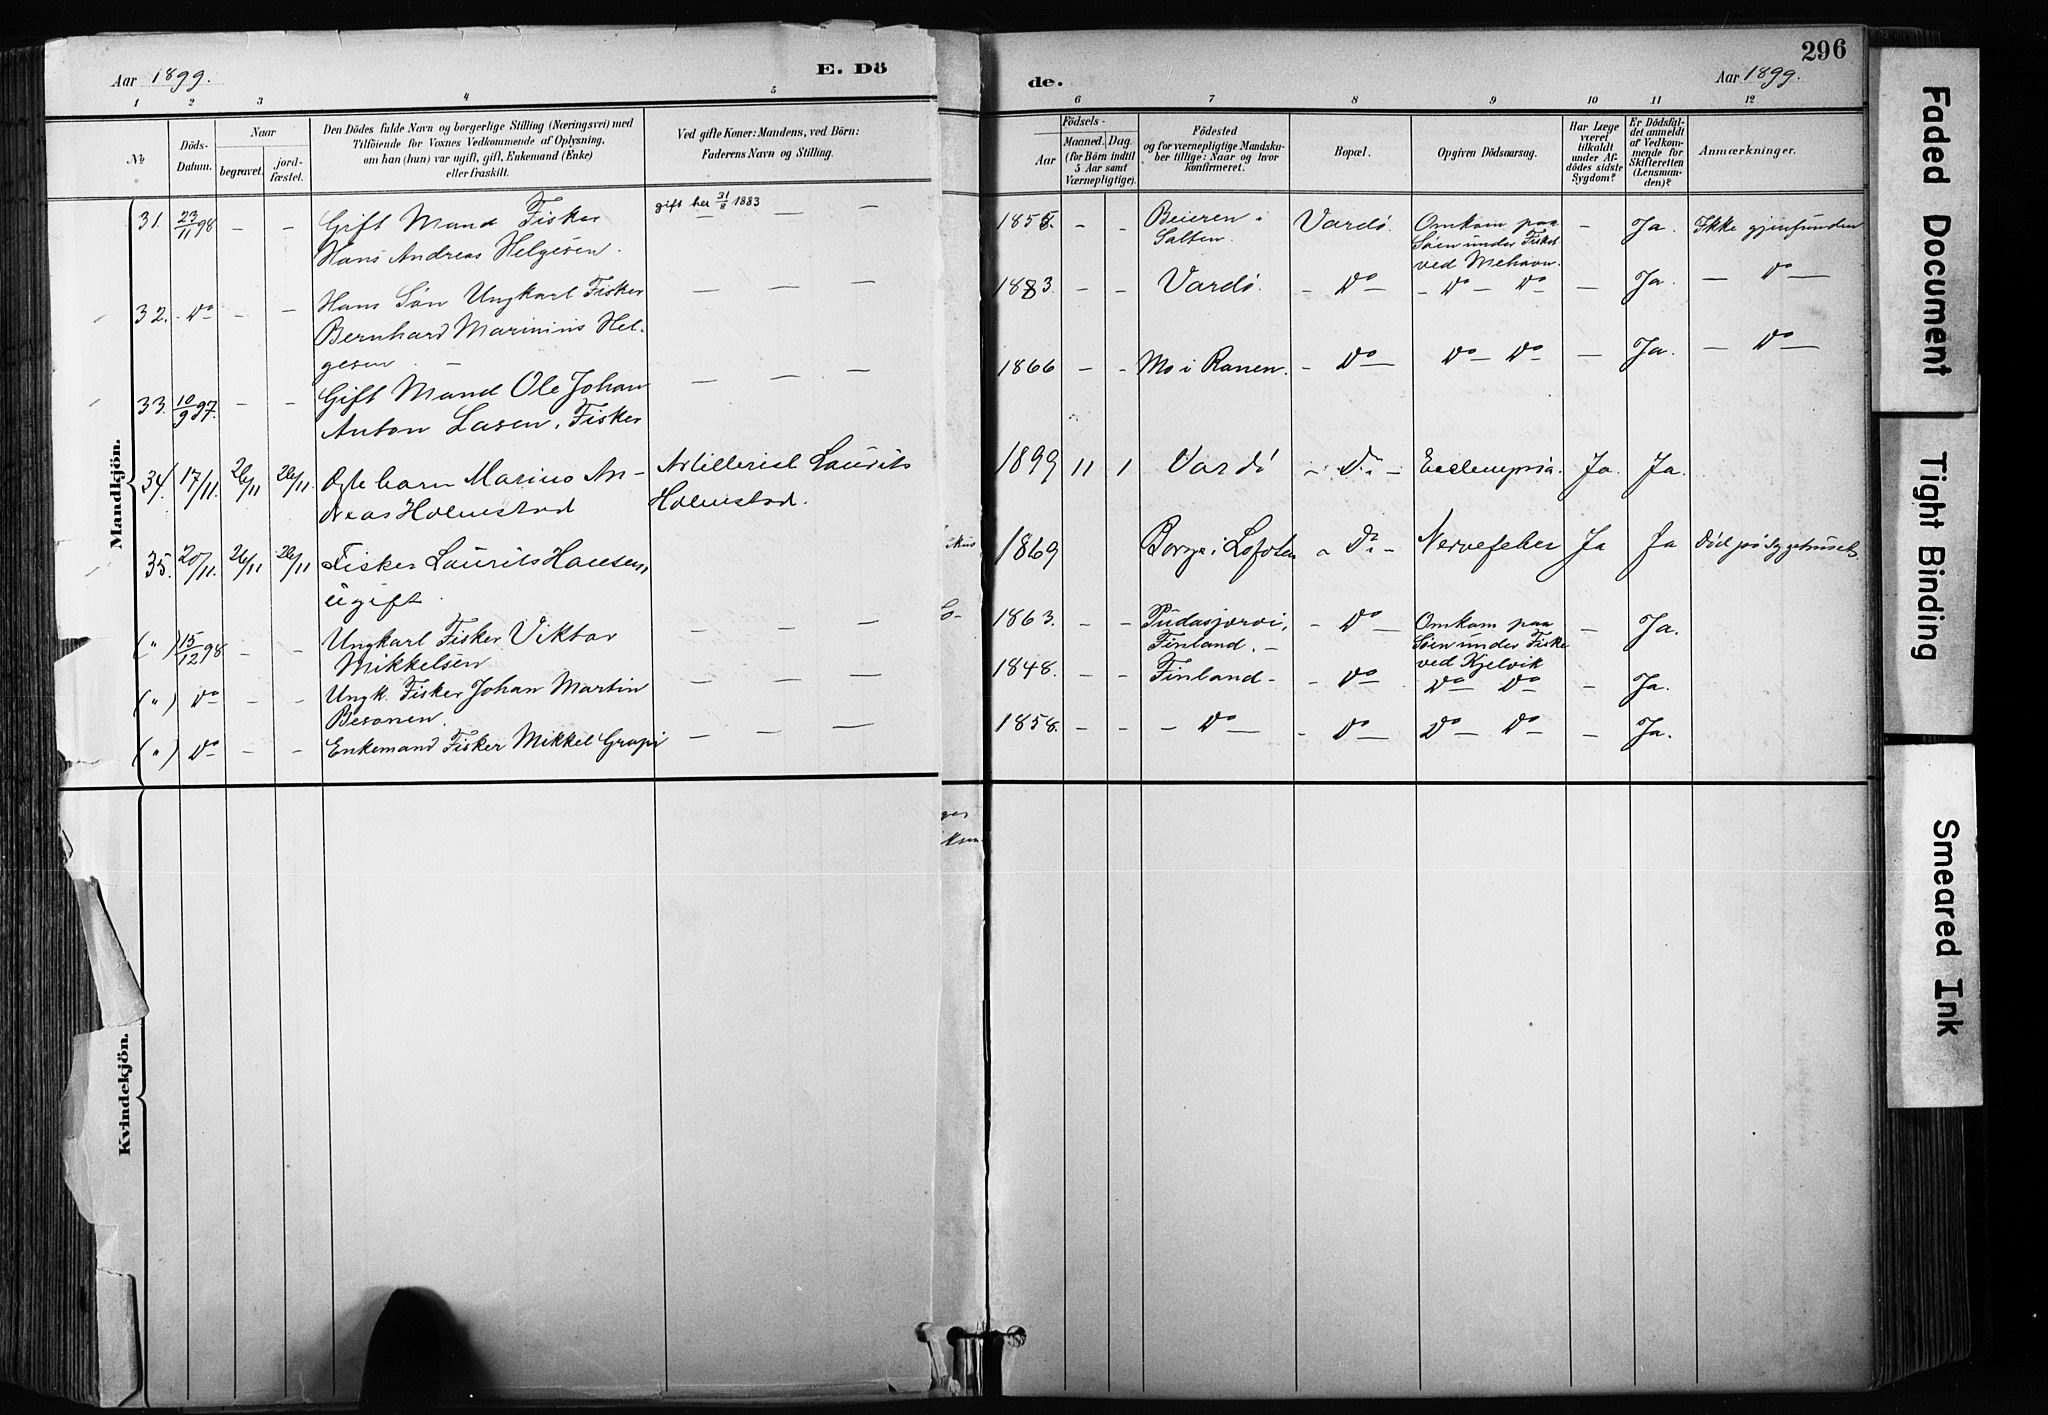 Aar 1899.
E. Dö
de.
Aar 1899.
296
1 2 3 4 5 6 7 8 9 10 11 12
No
Döds-
Datum.
Naar
begravet.
jord-
fæstet.
Den Dödes fulde Navn og borgerlige Stilling (Næringsvei) med
Tilföiende for Voxnes Vedkommende af Oplysning,
om han (hun) var ugift, gift, Enkemand (Enke)
eller fraskilt.
Ved gifte Koner: Mandens, ved Börn:
Faderens Navn og Stilling.
Födsels-
Aar
Maaned. Dag.
(for Börn indtil
5 Aar samt
Værnepligtige).
Födested
og for værnepligtige Mandsku-
ber tillige: Naar og hvor
Konfirmeret.
Bopæl.
Opgiven Dödsaarsag.
Har Læge
været
tilkaldt
under Af-
dödes sidste
Sygdom?
Er Dödsfal-
det anmeldt
af Vedkom-
mende for
Skifteretten
(Lensman-
den)?
Anmærkninger.
Mandkjön.
31. 23/11 98 - - Gift Mand Fisker
Hans Andreas Helgesen.
gift her 31/8 1883
- - -
185 - - Beieren i
Salten.
Vardö.
Omkom paa
Söen under Fiske
ved Mehavn.
- Ja. Ikke gjenfunden
32. Do - - Hans Sön Ungkarl Fisker
Bernhard Marinius Hel-
gesen -
- - -
1883. - - Vardö. - Do - Do - Do - Ja. - Do -
33. 10/9 97. - - Gift Mand Ole Johan
Anton Lasen, Fisker
- - -
1866 - - Mo i Ranen. - Do Do - Do - Ja. - Do -
34. 17/11. 26/11 26/11. Ægte barn Marino An-
dreas Holmstad
Artillerist Laurits
Holmstad.
1899 11 1 Vardö - Do - Ecclampsia. Ja. Ja.
35. 20/11. 26/11 26/11 Fisker Laurits Hansen,
ugift.
1869 Borge i Lofoten - Do - Nervefeber Ja Ja Död på Sygehuset.
(") 15/12 98 - - Ungkarl Fisker Viktor
Mikkelsen
- - -
1863. - - Pudasjærvi,
Finland. -
- Do -
Omkom paa
Söen under Fiske
ved Kjelvik
- Ja.
(") Do - - Ungk. Fisker Johan Martin
Besonen.
- - -
1848. - - Finland - - Do Do Do - Ja.
(") Do - - Enkemand Fisker Mikkel Grapi
- - -
1858. - - - Do - Do Do Do - Ja.
Kvindekjön.
Faded Document
Tight Binding
Smeared Ink